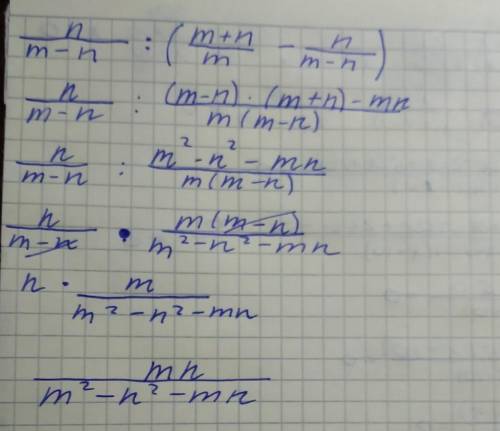 n/(m-n) : ((m+n)/m - n/(m-n))
n/(m-n) : ((m-n)·(m+n)-mn)/(m(m-n))
n/(m-n) : (m²-n²-mn)/(m(m-n))
n/(m-n) · (m(m-n))/(m²-n²-mn)
n · m/(m²-n²-mn)
mn/(m²-n²-mn)